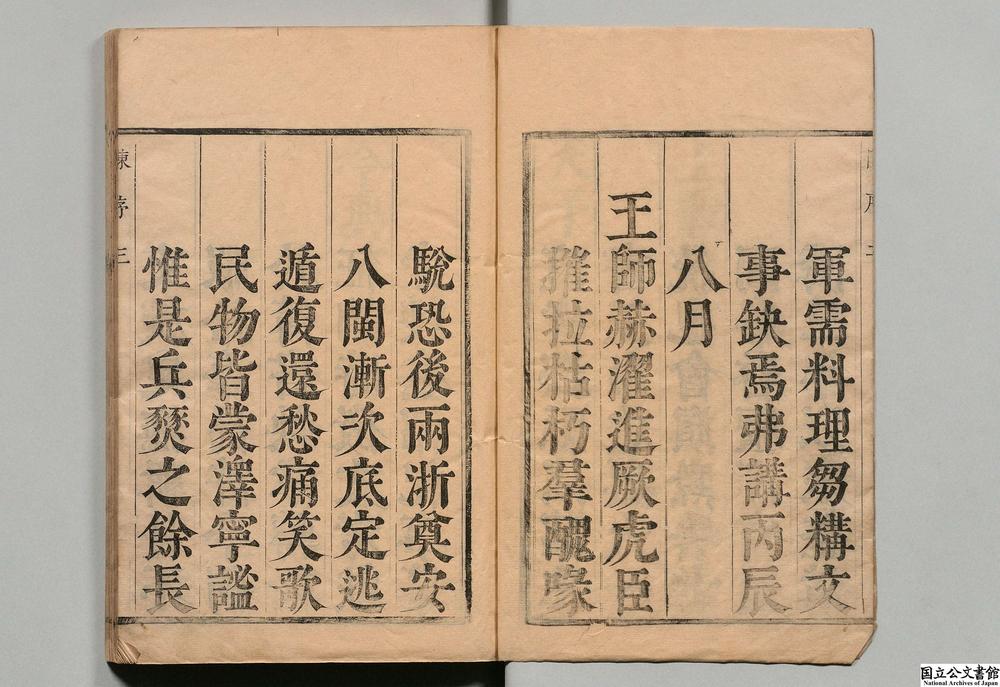 軍需料理芻文
事缺焉弗講丙辰
八月
王師赫濯進厥虎臣
摧拉枯朽羣醜喙
駾恐後兩浙奠安
八閩漸次底定逃
遁復還愁痛笑歌
民物皆蒙澤寧謐
惟是兵燹之餘長
序 三
国立公文書館
National Archives of Japan